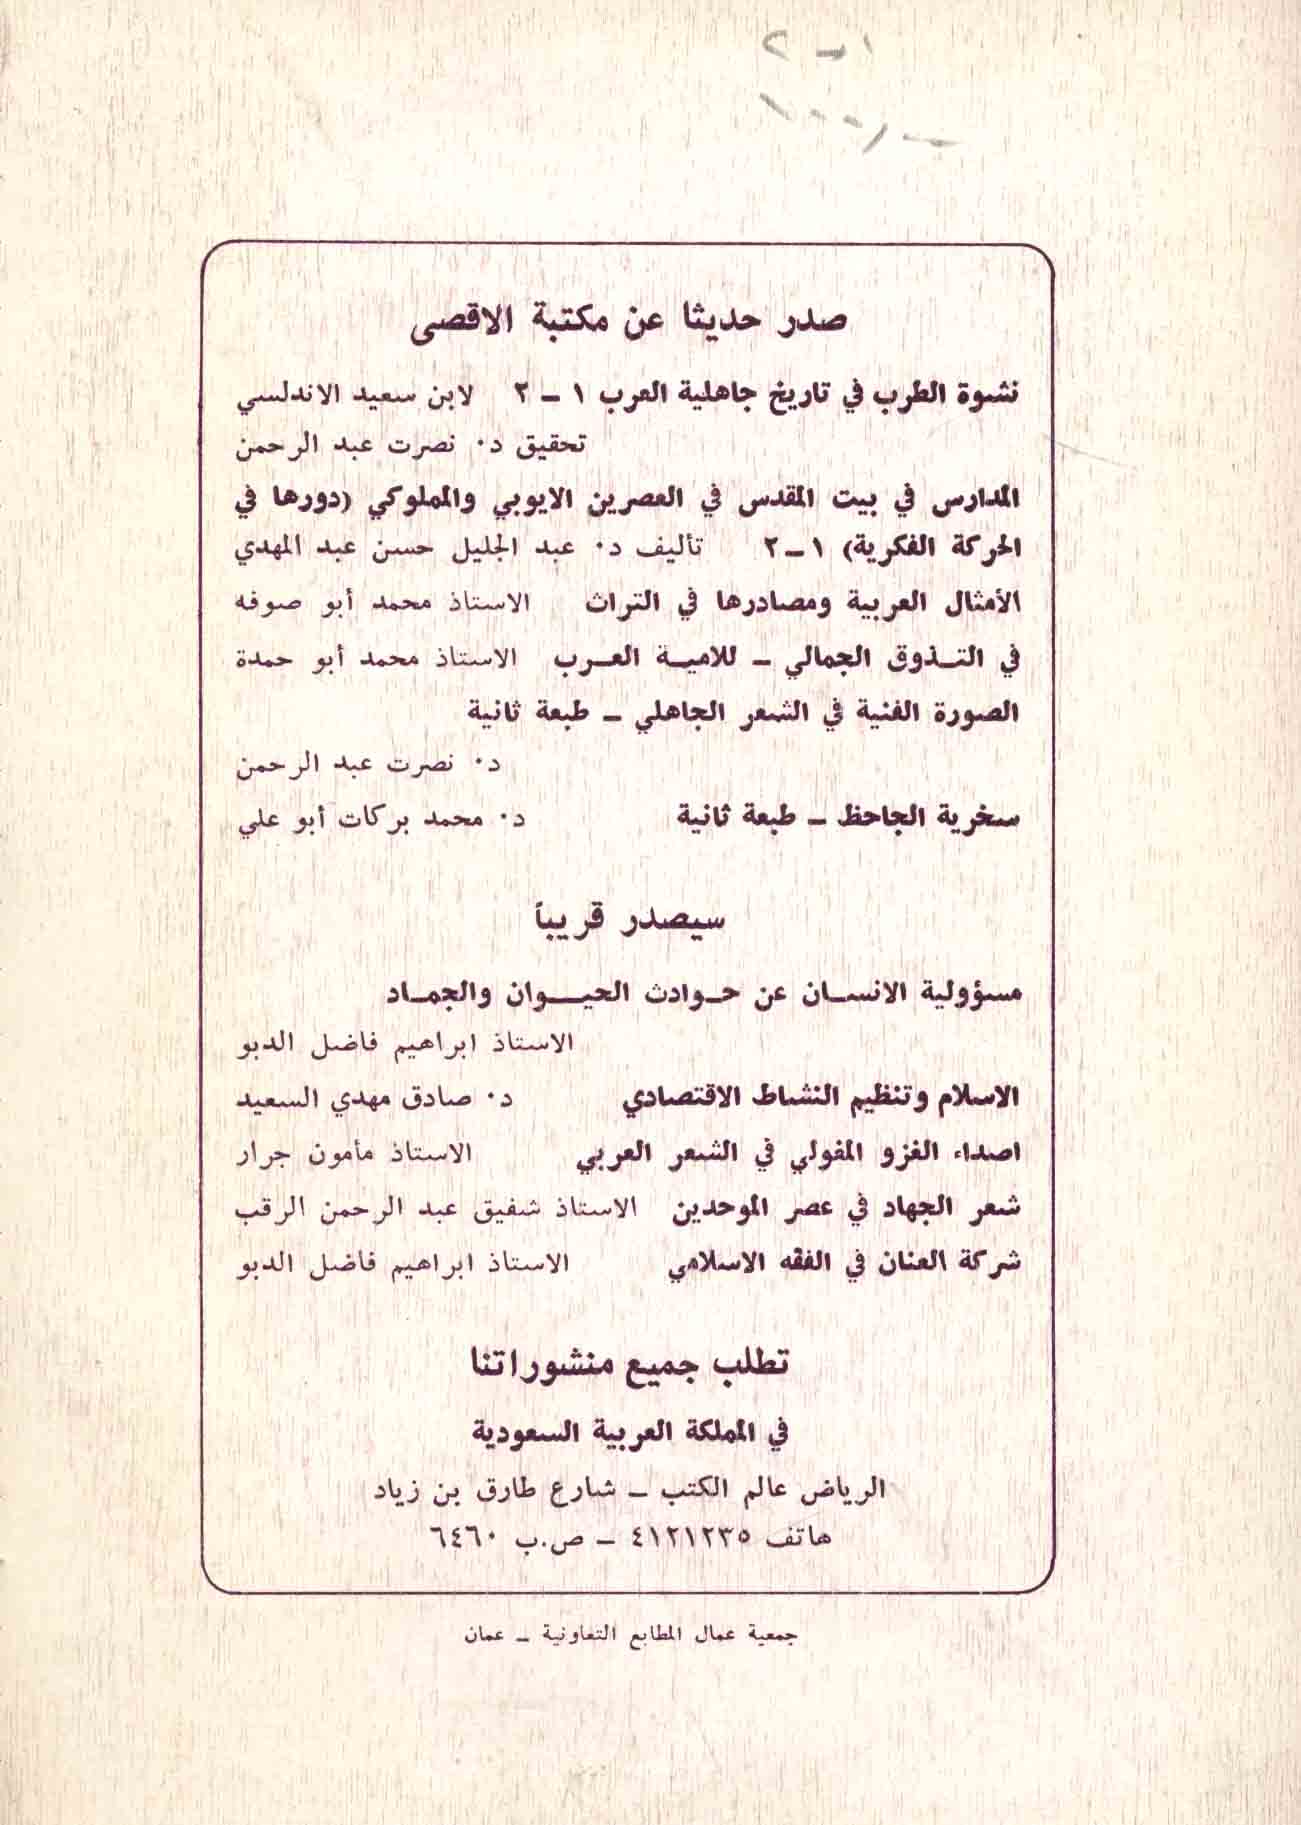 صدر حديثا عن مكتبة الاقصى
نشوة الطرب في تاريخ جاهلية العرب ١ – ٢ لابن سعيد الاندلسي
تحقيق د٠ نصرت عبد الرحمن
المدارس في بيت المقدس في العصرين الايوبي والمملوكي (دورها في
الحركة الفكرية) ١–٢ تأليف د٠ عبد الجليل حسن عبد المهدي
الأمثال العربية ومصادرها في التراث الاستاذ محمد أبو صوفه
في التـذوق الجمالي – للاميـة العـرب الاستاذ محمد أبو حمدة
الصورة الفنية في الشعر الجاهلي – طبعة ثانية
د٠ نصرت عبد الرحمن
سخرية الجاحظ – طبعة ثانية د٠ محمد بركات أبو علي
سيصدر قريباً
مسؤولية الانسـان عن حـوادث الحيـوان والجمـاد
الاستاذ ابراهيم فاضل الدبو
الاسلام وتنظيم النشاط الاقتصادي د٠ صادق مهدي السعيد
اصداء الغزو المغولي في الشعر العربي الاستاذ مأمون جرار
شعر الجهاد في عصر الموحدين الاستاذ شفيق عبد الرحمن الرقب
شركة العنان في الفقه الاسلامي الاستاذ ابراهيم فاضل الدبو
تطلب جميع منشوراتنا
في المملكة العربية السعودية
الرياض عالم الكتب – شارع طارق بن زياد
هاتف ٤١٢١٢٣٥ – ص.ب ٦٤٦٠
جمعية عمال المطابع التعاونية – عمان